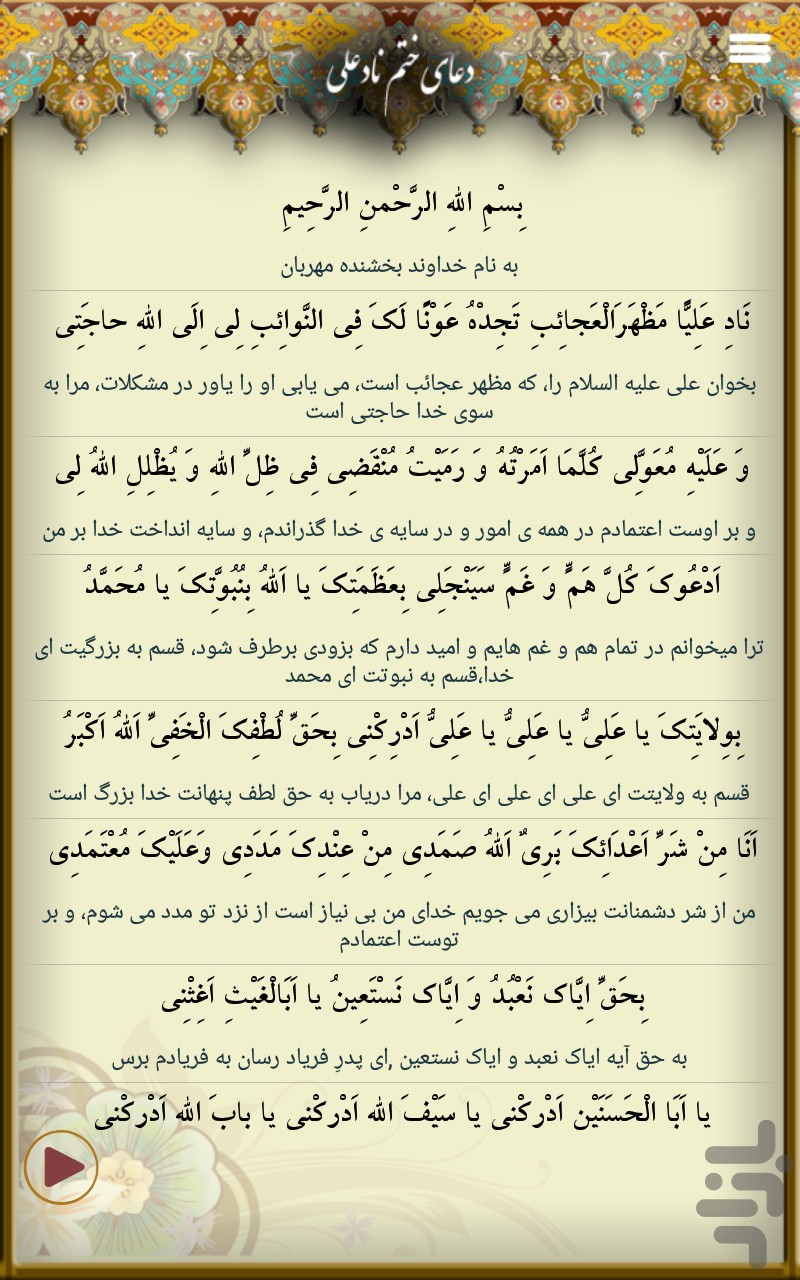 دعای ختم نادعلی
بِسْمِ اللهِ الرَّحْمنِ الرَّحِیمِ
به نام خداوند بخشنده مهربان
نَادِ عَلِیًّا مَظْهَرَالْعَجائِبِ تَجِدْهُ عَوْنًا لَکَ فِی النَّوائِبِ لِی اِلَی اللهِ حاجَتِی
بخوان علی علیه السلام را، که مظهر عجائب است، می یابی او را یاور در مشکلات، مرا به
سوی خدا حاجتی است
وَ عَلَیْهِ مُعَوَّلِی کُلَّمَا اَمَرْتُهُ وَ رَمَیْتُ مُنْقَضِی فِی ظِلِّ اللهِ وَ یُظْلِلِ اللهُ لِی
و بر اوست اعتمادم در همه ی امور و در سایه ی خدا گذراندم، و سایه انداخت خدا بر من
اَدْعُوکَ کُلَّ هَمٍّ وَ غَمٍّ سَیَنْجَلِی بِعَظَمَتِکَ یا اَللهُ بِنُبُوَّتِکَ یا مُحَمَّدُ
ترا میخوانم در تمام هم و غم هایم و امید دارم که بزودی برطرف شود، قسم به بزرگیت ای
خدا،قسم به نبوتت ای محمد
بِوِلایَتِکَ یا عَلِیُّ یا عَلِیُّ یا عَلِیُّ اَدْرِکْنِی بِحَقِّ لُطْفِکَ الْخَفِیِّ اَللهُ اَکْبَرُ
قسم به ولایتت ای علی ای علی ای علی، مرا دریاب به حق لطف پنهانت خدا بزرگ است
اَنَا مِنْ شَرِّ اَعْدَائِکَ بَرِیٌ اَللهُ صَمَدِی مِنْ عِنْدِکَ مَدَدِی وَعَلَیْکَ مُعْتَمَدِی
من از شر دشمنانت بیزاری می جویم خدای من بی نیاز است از نزد تو مدد می شوم، و بر
توست اعتمادم
بِحَقِّ اِیَّاکَ نَعْبُدُ وَ اِیَّاکَ نَسْتَعِینُ یا اَبَالْغَیْثِ اَغِثْنِی
به حق آیه ایاک نعبد و ایاک نستعین ,ای پدرِ فریاد رسان به فریادم برس
یا اَبَا الْحَسَنَیْن اَدْرکْنی یا سَیْفَ الله اَدْرکْنی یا بابَ الله اَدْرکْنی
بازار